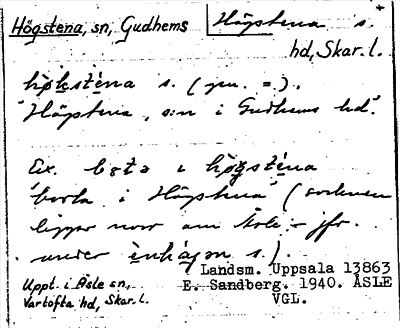 Högstena, sn, Gudhems
Högstena s.
hd, Skar. l.
högstena s. ( = ).
"Högstena, s:n i Gudhems hd".
Ex. i högstena
'borta i Högstena' (socknen
ligger norr om Åsle - jfr.
under s.).
Landsm. Uppsala 13863
Uppt. i Åsle sn,
E. Sandberg. 1940. ÅSLE
Vartofta hd, Skar. l.
VGL.